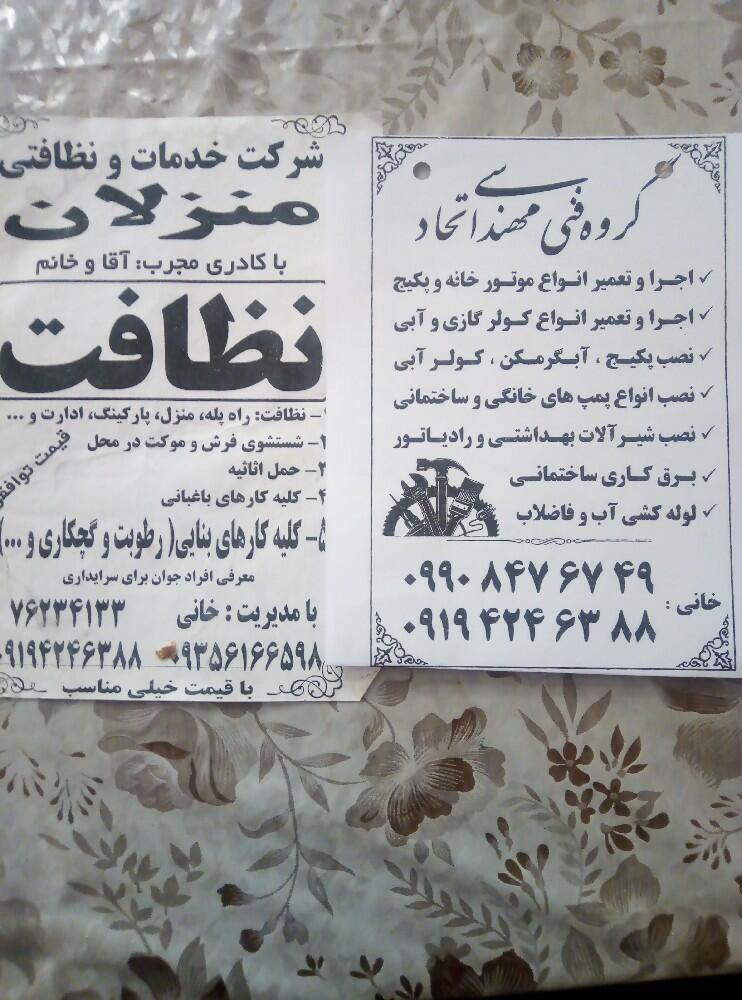 شرکت خدمات و نظافتی
منزلان
با کادری مجرب: آقا و خانم
نظافت
۱- نظافت: راه پله، منزل، پارکینگ، ادارت و ...
۲- شستشوی فرش و موکت در محل
۳- حمل اثاثیه
۴- کلیه کارهای باغبانی
قیمت توافقی
۵- کلیه کارهای بنایی( رطوبت و گچکاری و ...)
معرفی افراد جوان برای سرایداری
با مدیریت : خانی ۷۶۲۳۴۱۳۳
۰۹۳۵۶۱۶۶۵۹۸ ۰۹۱۹۴۲۴۶۳۸۸
با قیمت خیلی مناسب
گروه فنی مهندسی اتحاد
✓ اجرا و تعمیر انواع موتور خانه و پکیج
✓ اجرا و تعمیر انواع کولر گازی و آبی
✓ نصب پکیج ، آبگرمکن ، کولر آبی
✓ نصب انواع پمپ های خانگی و ساختمانی
✓ نصب شیرآلات بهداشتی و رادیاتور
✓ برق کاری ساختمانی
✓ لوله کشی آب و فاضلاب
خانی :
۰۹۹۰ ۸۴۷ ۶۷ ۴۹
۰۹۱۹ ۴۲۴ ۶۳ ۸۸